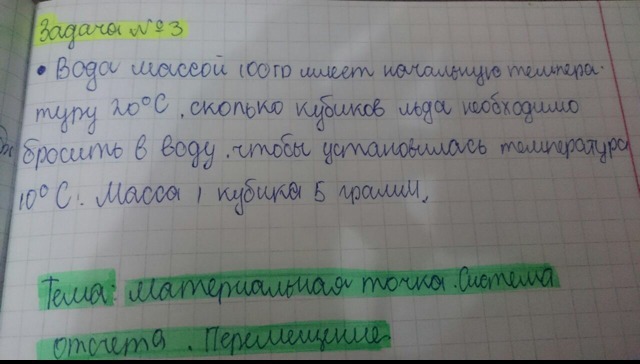 Задача № 3
• Вода массой 100гр имеет начальную темпера-
туру 20°С. сколько кубиков льда необходимо
бросить в воду. чтобы установилась температура
10°С. Масса 1 кубика 5 грамм.
Тема: материальная точка. Система
отсчета. Перемещение